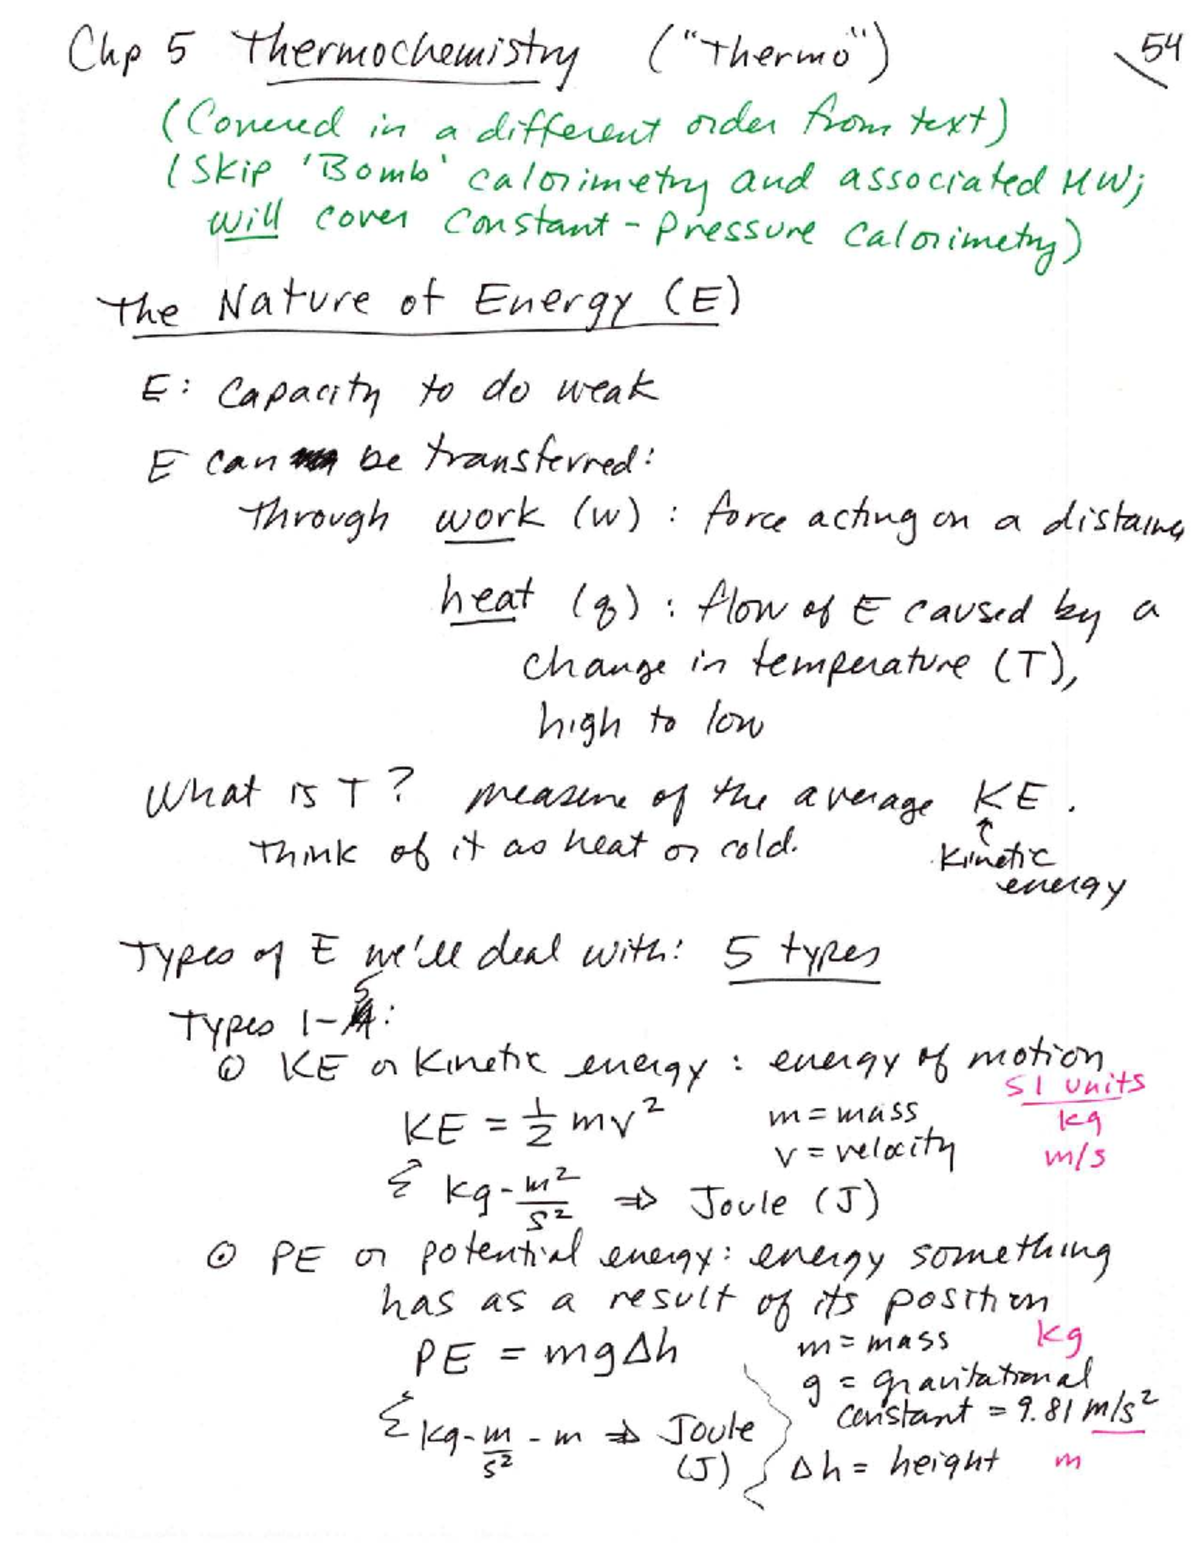 Chp 5 Thermochemistry ("Thermo") 54
(Covered in a different order from text)
(Skip 'Bomb' calorimetry and associated HW;
will cover constant-pressure calorimetry)
The Nature of Energy (E)
E: Capacity to do weak
E can be transferred:
Through work (w): force acting on a distance
heat (q): flow of E caused by a
change in temperature (T),
high to low
What is T? measure of the average KE.
Think of it as heat or cold. ↑
Kinetic
energy
Types of E we'll deal with: 5 types
Types 1-5:
① KE or Kinetic energy: energy of motion
SI units
KE = 1/2 mv² m = mass kg
v = velocity m/s
Σ kg-m²/s² ⇒ Joule (J)
⊙ PE or potential energy: energy something
has as a result of its position
PE = mgΔh m = mass kg
g = gravitational
constant = 9.81 m/s²
Σ kg-m/s²-m ⇒ Joule
(J) Δh = height m